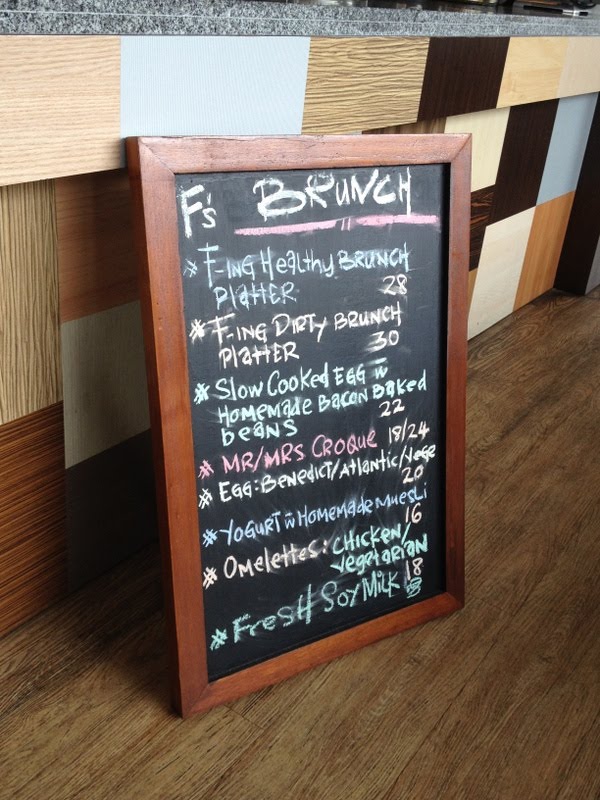 F's BRUNCH
* F-ing Healthy BRUNCH
Platter 28
* F-ing Dirty BRUNCH
Platter 30
* Slow Cooked Egg w̄
Homemade Bacon Baked
beans 22
* MR/MRS CROQUE 18/24
* Egg: Benedict/Atlantic/Vege
20
* Yogurt w̄ Homemade Muesli
16
* Omelettes: Chicken/
Vegetarian
18
* Fresh Soy Milk 8